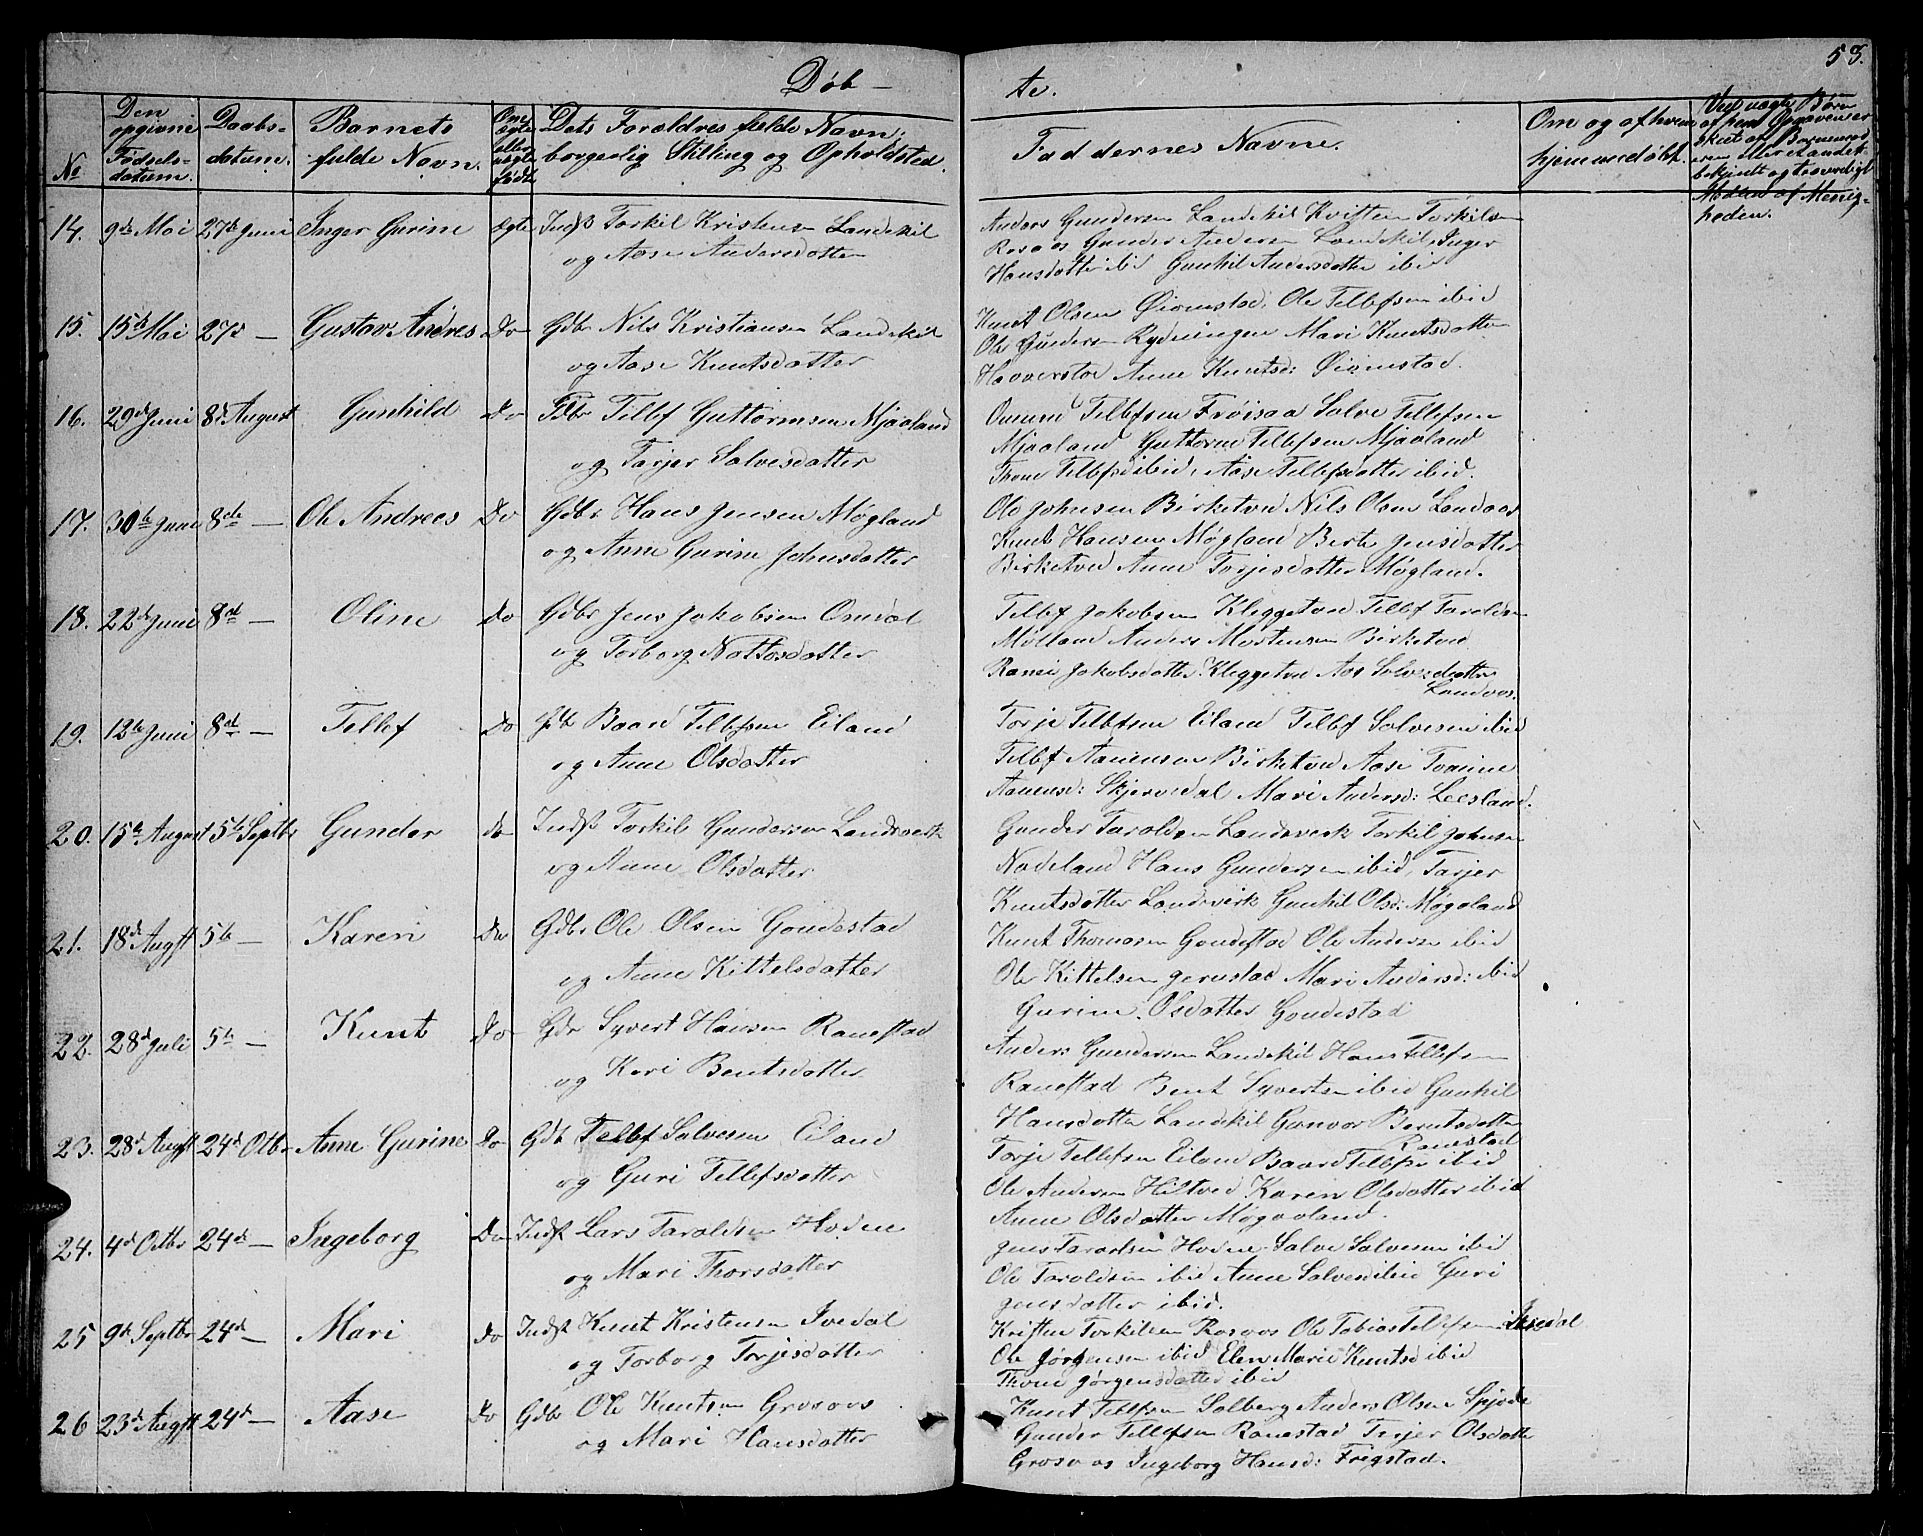 Døb-
te.
53.
No
Den opgivne Fødsels-datum.
Daabs-datum.
Barnets fulde Navn.
Om ægte eller uægte født
Dets Forældres fulde Navn, borgerlig Stilling og Opholdsted.
Faddernes Navne.
Om og af hvem hjemmedøbt.
14. 9de Mai 27de Juni Inger Gurine Ægte Indst Torkil Kristensen Landskil
og Aase Andersdatter
Anders Gundersen Landskil Kristen Torkilsen
Rosaas Gunder Andersen Landskil, Inger
Hansdatter ibid Gunhil Andersdatter ibid
15. 15de Mai 27de — Gustav Andres Do Gdbr Nils Kristiansen Landskil
og Aase Knutsdatter
Knut Olsen Øvrnstad, Ole Tellefsen ibid
Ole Gundersen Rydningen Mari Knutsdatter
Haaverstad Anne Knutsd: Øvrnstad.
16. 29de Juni 8de August Gunhild Do Gdbr Tellef Guttormsen Mjaaland
og Tarjer Salvesdatter
Omund Tellefsen Frøisaa Salve Tellefsen
Mjaaland Guttorm Tellefsen Mjaaland
Thone Tellefsd ibid, Aase Tellefsdatter ibid.
17. 30te Juni 8de — Ole Andrees Do Gdbr Hans Jensen Møgland
og Anne Gurine Johnsdatter
Ole Johnsen Birketved Nils Olsen Landaas
Knut Hansen Møgland Berte Jensdatter
Birketved Anne Torjesdatter Møgland.
18. 22de Juni 8de — Oline Do Gdbr Jens Jakobsen Omdal
og Torborg Nottosdatter
Tellef Jakobsen Kleggetved Tellef Taroldsen
Mølland Anders Mortensen Birketved
Jakobsdatter Kleggetved Aas Salvesdatter
Landaas.
19. 12te Juni 8de — Tellef Do Baard Tellefsen Eiland
og Anne Olsdatter
Torje Tellefsen Eiland Tellef Salvesen ibid
Tellef Aanensen Birketved Aase Tomine
Aanensd: Skjeredal Mari Andersd: Leesland.
20. 15de August 5te Septbr Gunder do Indst Torkil Gundersen Landsverk
og Anne Olsdatter
Gunder Taroldsen Landsverk Torkil Johnsen
Nodeland Hans Gundersen ibid, Tarjer
Knutsdatter Landsverk Gunhil Olsd: Møgaland
21. 18de Augst 5te — Karen Do Gdbr Ole Olsen Gondestad
og Anne Kittelsdatter
Knut Thomasen Gondestad Ole Andersen ibid
Ole Kittelsen Jerustad Mari Andersd: ibid
Gurine Olsdatter Gondestad
22. 28de Juli 5te — Knut Do Gdr Syvert Hansen Ranestad
og Kari Bentsdatter
Anders Gundersen Landskil Hans Tellefsen
Ranestad Bent Syvertsen ibid Gunhil
Hansdatter Landskil Gunvor Berntsdatter
Ranestad
23. 28de Augst 24de Otbr Anne Gurine Do Gdb Tellef Salvesen Eiland
og Guri Tellefsdatter
Torje Tellefsen Eiland Baard Tellefsen ibid
Ole Andersen Hiltved Karen Olsdatter ibid
Anne Olsdatter Møgaland.
24. 4de Octbr 24de — Ingeborg Do Indst Lars Taroldsen Hodne
og Mari Thorsdatter
Jens Taraldsen Hodne Salve Salvesen ibid
Ole Taroldsen ibid Anne Salvesd ibid Guri
Jensdatter ibid.
25 9de Septbr 24de — Mari do Indst Knut Kristensen Ivedal
og Torborg Torjesdatter
Kristen Torkilsen Rosaas Ole Tobias Tellefsen Ivedal
Ole Jørgensen ibid Elen Marie Knutsd ibid
Thone Jørgensdatter ibid
26 23de Augst 24de — Aase do Gdbr Ole Knutsen Grosaas
og Mari Hansdatter
Knut Tellefsen Solberg Anders Olsen
Gunder Tellefsen Ranestad Torjer Olsdatter
Grosaas Ingeborg Hansd: Fregstad.